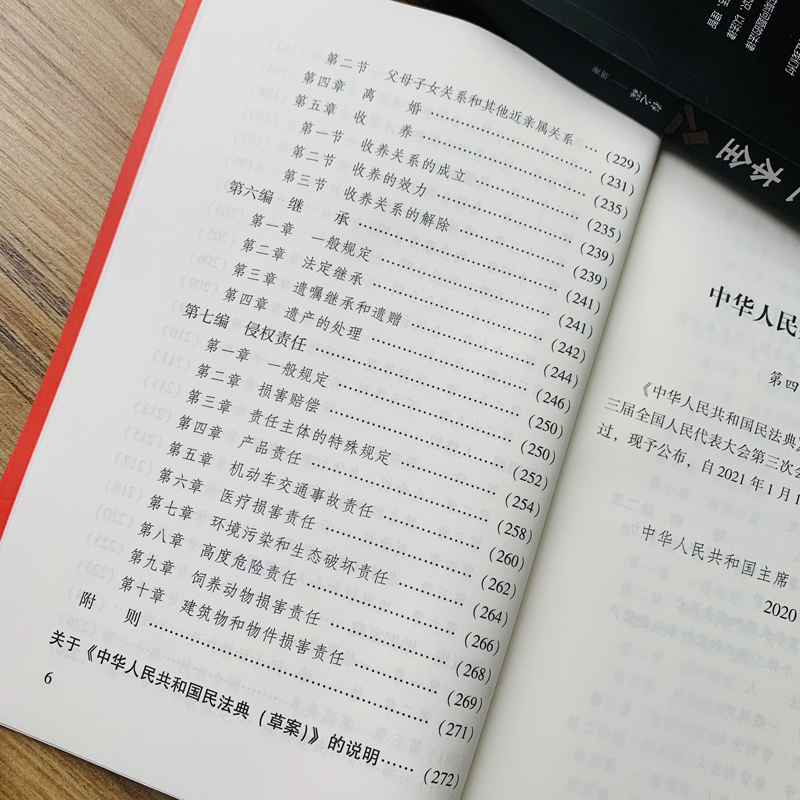 第二节 父母子女关系和其他近亲属关系 …(229)
第四章 离 婚 ……………(231)
第五章 收 养 ……………(235)
第一节 收养关系的成立 ……………(235)
第二节 收养的效力 ……………(239)
第三节 收养关系的解除 ……………(239)
第六编 继 承 ……………(241)
第一章 一般规定 ……………(241)
第二章 法定继承 ……………(242)
第三章 遗嘱继承和遗赠 ……………(244)
第四章 遗产的处理 ……………(246)
第七编 侵权责任 ……………(250)
第一章 一般规定 ……………(250)
第二章 损害赔偿 ……………(252)
第三章 责任主体的特殊规定 ……………(254)
第四章 产品责任 ……………(258)
第五章 机动车交通事故责任 ……………(260)
第六章 医疗损害责任 ……………(262)
第七章 环境污染和生态破坏责任 ……………(264)
第八章 高度危险责任 ……………(266)
第九章 饲养动物损害责任 ……………(268)
第十章 建筑物和物件损害责任 ……………(269)
附 则 ……………(271)
关于《中华人民共和国民法典（草案）》的说明……(272)
6
中华人民
第四
《中华人民共和国民法典》
三届全国人民代表大会第三次会
过，现予公布，自2021年1月1
中华人民共和国主席
2020